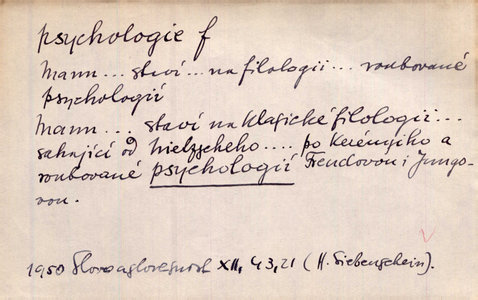 psychologie f
Mann... staví... na filologii... roubované
psychologií
Mann... staví na klasické filologii...
sahající od Nietzscheho.... po Kerényiho a
roubované psychologií Freudovou i Jungo-
vou.
1950 Slovo a slovesnost XII, 43, 21 (H. Siebenschein).